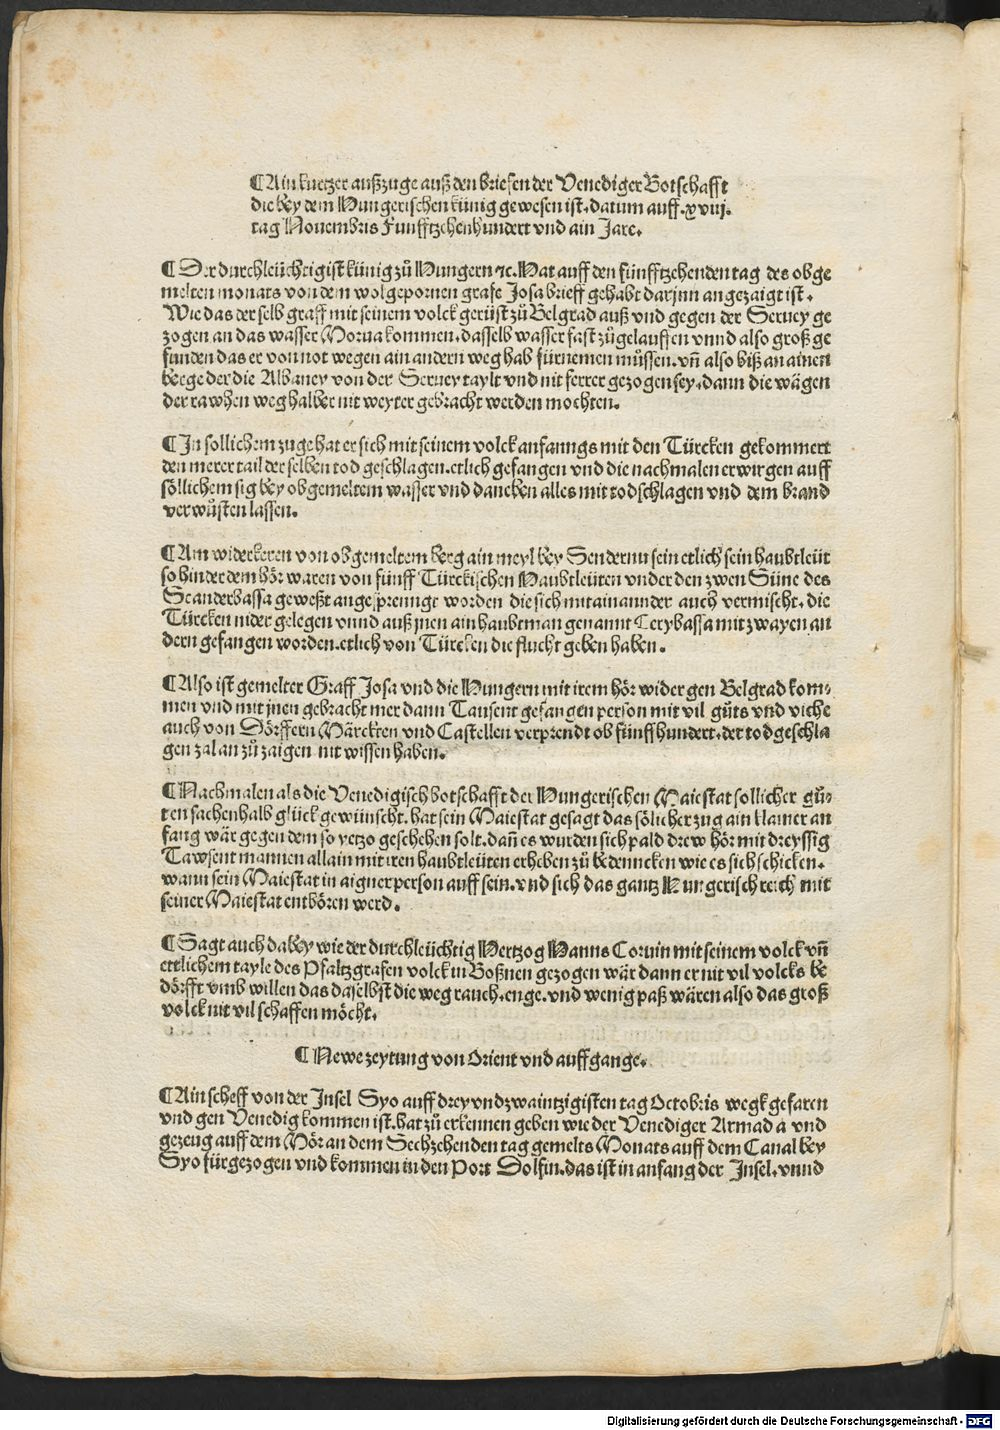 ¶Ain kurtzer außzuge auß den briefen der Venediger Botschafft
die bey dem Hungerischen künig gewesen ist. datum auff .xviij.
tag Nouembris Funfftzehenhundert vnd ain Jare.
¶ Der durchleüchtigist künig zů Hungern ⁊c. Hat auff den fünfftzehenden tag des obge
melten monats von dem wolgepornen grafe Josa brieff gehabt darjnn angezaigt ist.
Wie das der selb graff mit seinem volck gerüst zů Belgrad auß vnd gegen der Seruey ge
zogen an das wasser Morua kommen. dasselb wasser fast zůgelauffen vnnd also groß ge
funden das er von not wegen ain andern weg hab fürnemen müssen. vñ also biß an ainen
berge der die Albaney von der Seruey taylt vnd nit ferrer gezogen sey. dann die wägen
der rawhen weg halber nit weyter gebracht werden mochten.
¶ In sollichem zuge hat er sich mit seinem volck anfanngs mit den Türcken gekommert
den merer tail der selben tod geschlagen. etlich gefangen vnd die nachmalen erwirgen auff
söllichem sig bey obgemeltem wasser vnd daneben alles mit todschlagen vnd dem brand
verwůsten lassen.
¶ Am widerkeren von obgemeltem berg ain meyl bey Sendernu sein etlich sein haubtleüt
so hinder dem hör waren von fünff Türckischen Haubtleüten vnder den zwen Süne des
Scanderbassa geweßt angesprenngt worden die sich mitainannder auch vermischt. die
Türcken nider gelegen vnnd auß jnen ain haubtman genannt Cerybassa mit zwayen an
dern gefangen worden. etlich von Türcken die flucht geben haben.
¶ Also ist gemelter Graff Josa vnd die Hungern mit irem hör wider gen Belgrad kom⸗
men vnd mit jnen gebracht mer dann Tausent gefangen person mit vil gůts vnd viche
auch von Dörffern Märckten vnd Castellen verprendt ob fünffhundert. der tod geschla
gen zal an zů zaigen nit wissen haben.
¶ Nachmalen als die Venedigisch botschafft der Hungerischen Maiestat sollicher gů⸗
ten sachen halb glück gewünscht. hat sein Maiestat gesagt das sölicher zug ain klainer an
fang wär gegen dem so yetzo geschehen solt. dañ es wurden sich pald drew hör mit dreyssig
Tawsent mannen allain mit iren haubtleüten erheben zů bedenncken wie es sich schicken.
wann sein Maiestat in aigner person auff sein. vnd sich das gantz Hungerisch reich mit
seiner Maiestat enthören werd.
¶ Sagt auch dabey wie der durchleüchtig Hertzog Hanns Coruin mit seinem volck vñ
ettlichem tayle des Pfaltzgrafen volck in Boßnen gezogen wär dann er nit vil volcks be
dörfft vmb willen das daselbst die weg rauch. enge. vnd wenig paß wären also das groß
volck nit vil schaffen möcht.
¶ Newe zeytung von Orient vnd auffgange.
¶ Ain scheff von der Insel Syo auff drey vnd zwaintzigisten tag Octobris wegk gefaren
vnd gen Venedig kommen ist. hat zů erkennen geben wie der Venediger Armada vnd
gezeug auff dem Mör an dem Sechzehenden tag gemelts Monats auff dem Canal bey
Syo fürgezogen vnd kommen in den Port Dolfin. das ist in anfang der Insel. vnnd
Digitalisierung gefördert durch die Deutsche Forschungsgemeinschaft - DFG